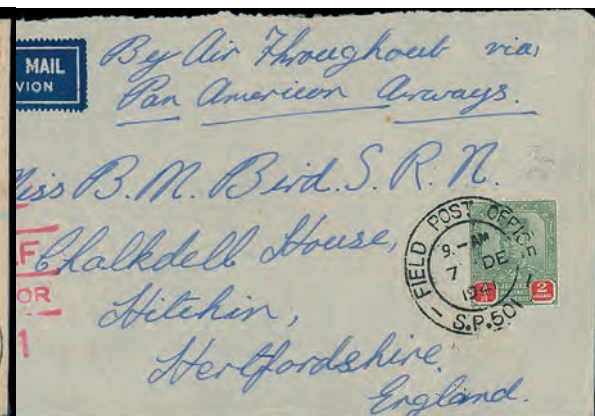 MAIL
VION
By Air Throughout via
Pan American Airways.
Miss B. M. Bird. S. R. N.
Chalkdell House,
Hitchin,
Hertfordshire.
England.
OR
1
FIELD POST OFFICE
9 - AM
7 DE
1941
S.P.501
2